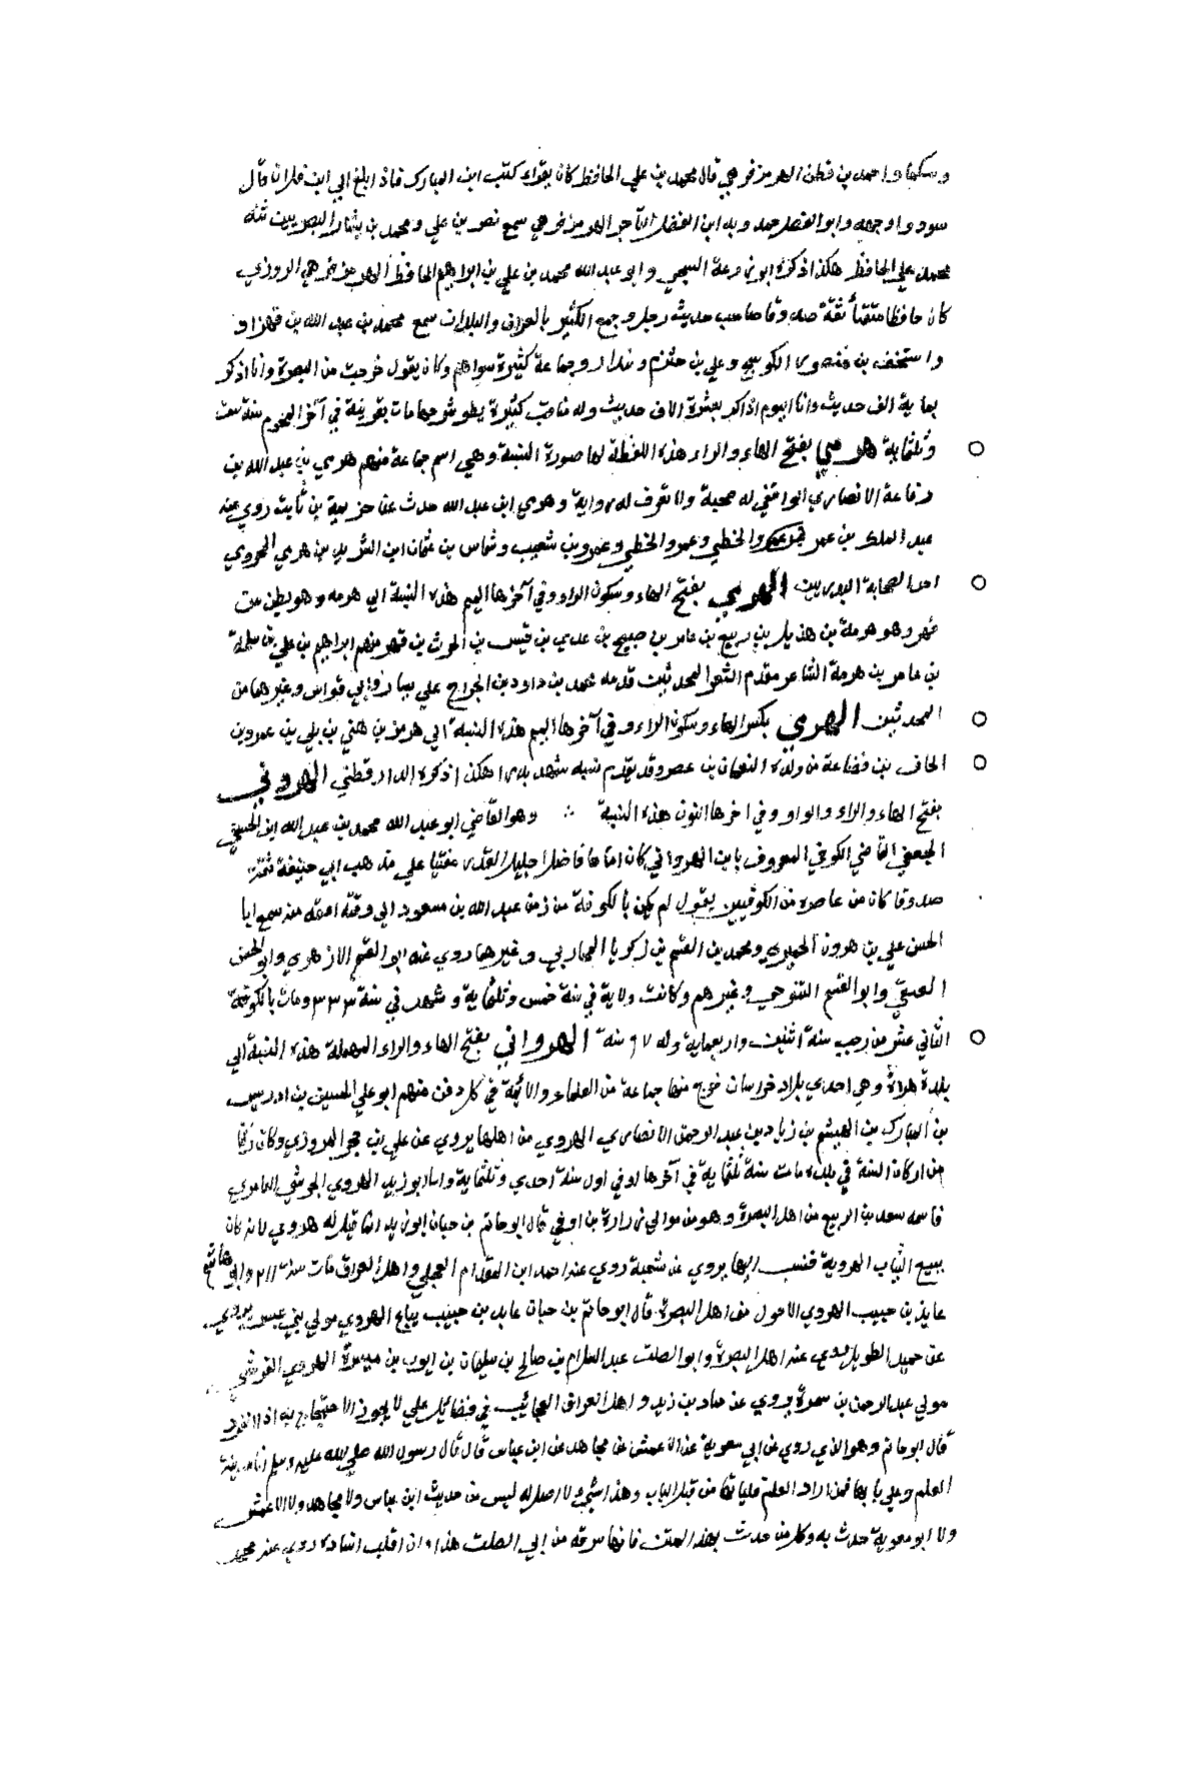 وسكها واحمد بن قطن الهرمزفرهي قال محمد بن علي الحافظ كان يقراء كتب ابن المبارك فاذا بلغ الي ابن فلان قال
سود واوجهه وابو الفضل بن الفضل التاجر الهرمزفرهي سمع نصر بن علي ومحمد بن بشار البصريين ثقه
محمد علي الحافظ هكذا ذكره ابو زرعة السبحي وابو عبد الله محمد بن علي بن ابراهيم الحافظ الهرمزفرهي المروزي
كان حافظا متقنا ثقة صدوقا صاحب حديث رحل وجمع الكثير بالعراق والبلدان سمع محمد بن عبد الله بن قهزاو
واسحق بن منصور الكوسج وعلي بن خشرم وبندار وجماعة كثيرة سواهم وكان يقول خرجت من البصرة وانا اذكر
بماية الف حديث وانا اليوم اذاكر بعشرة الاف حديث وله مناقب كثيرة يطول شرحها مات بقرينة في آخر المحرم سنة ست
وثلثماية هرمي بفتح الهاء والراء هذه اللفظة لها صورة النسبة وهي اسم جماعة منهم هرمي بن عبد الله بن
رفاعة الانصاري الواقفي له صحبة ولا تعرف له رواية وهرمي ابن عبد الله حدث عن خزيمة بن ثابت روي عنه
عبد الملك بن عمر والخطمي وعمرو الخطمي وعمرو بن شعيب وشماس بن عثمان ابن الشريد بن هرمي المخزومي
احد الصحابة البدريين الهرمي بفتح الهاء وسكون الراء وفي آخرها الميم هذه النسبة الي هرمه وهو بطن من
فهر وهو هرمة بن هذيل بن ربيع بن عامر بن صبيح بن عدي بن قيس بن الحرث بن فهر منهم ابراهيم بن علي بن سلمة
بن عامر بن هرمة الشاعر مقدم الشعرا المحدثين قدمه محمد بن داود بن الجراح علي بشار وابي نواس وغيرهما من
المحدثين الهرمي بكسر الهاء وسكون الراء وفي آخرها الميم هذه النسبة الي هرم بن هني بن بلي بن عمرو بن
الحاف بن قضاعة من ولده النعمان بن عصر وقد تقدم نسبه شهد بدرا هكذا ذكره الدارقطني الهروني
بفتح الهاء والراء والواو وفي اخرها النون هذه النسبة ∴ وهو القاضي ابو عبد الله محمد بن عبد الله ابن الحسين
الجعفي القاضي الكوفي المعروف بابن الهرواني كان اماما فاضلا جليل القدر مفتيا علي مذهب ابي حنيفة ثقة
صدوقا كان من عاصره من الكوفيين يقول لم يكن بالكوفة من زمن عبد الله بن مسعود الي وقته افقه منه سمع ابا
الحسن علي بن هرون الحميري ومحمد بن القسم بن زكريا المحاربي وغيرهما روي عنه ابو القسم الازهري وابو الحسن
العتيقي وابو القسم التنوخي وغيرهم وكانت ولاية في سنة خمس وثلثماية وشهد في سنة ٣٣٣ ومات بالكوفة
الثاني عشر من رجب سنة اثنين واربعماية وله ٩٧ سنة الهرواني بفتح الهاء والراء المهملة هذه النسبة الي
بلدة هراة وهي احدي بلاد خراسان خرج منها جماعة من العلماء والائمة في كل فن منهم ابو علي الحسين بن ادريس
بن المبارك بن الهيثم بن زياد بن عبد الرحمن الانصاري الهروي من اهلها يروي عن علي بن حجر المروزي وكان ركنا
من اركان السنة في بلده مات سنة ثلثماية في آخرها او في اول سنة احدي وثلثماية واما ابو زيد الهروي الحرشي العامري
فاسمه سعد بن الربيع من اهل البصرة وهو من موالي زرارة بن اوفي قال ابو حاتم بن حبان ابو زيد انما قيل له هروي لانه كان
يبيع الثياب الهروية فنسب اليها يروي عن شعبة روي عنه احمد ابن المقدام العجلي واهل العراق مات سنة ٢١١ وابو هاشم
عايذ بن حبيب الهروي الاحول من اهل البصرة قال ابو حاتم بن حبان عايذ بن حبيب بياع الهروي مولي بني عبس يروي
عن حميد الطويل روي عنه اهل البصرة وابو الصلت عبد السلام بن صالح بن سليمان بن ايوب بن ميسرة الهروي القرشي
مولي عبد الرحمن بن سمرة يروي عن حماد بن زيد واهل العراق العجائب في فضائل علي لا يجوز الاحتجاج به اذا انفرد
قال ابو حاتم وهو الذي روي عن ابي معوية عن الاعمش عن مجاهد عن ابن عباس قال قال رسول الله صلي الله عليه وسلم انا مدينة
العلم وعلي بابها فمن اراد العلم فلياتها من قبل الباب وهذا شيء لا اصل له ليس من حديث ابن عباس ولا مجاهد ولا الاعمش
ولا ابو معوية حدث به وكل من حدث بهذا المتن فانما سرقه من ابي الصلت هذا وان اقلب اسناده روي عنه محمد